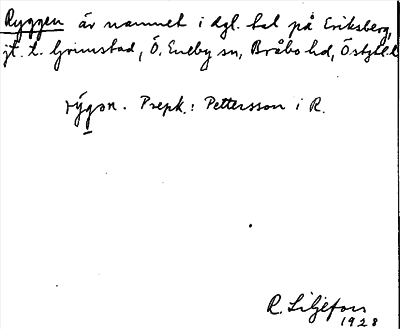 Ryggen är namnet i dgl. tal på Eriksberg,
jt. t. Grimstad, Ö. Eneby sn, Bråbo hd, Östgtl.
rýgǝn. Prepk.: Pettersson i R.
R. Liljefors
1928